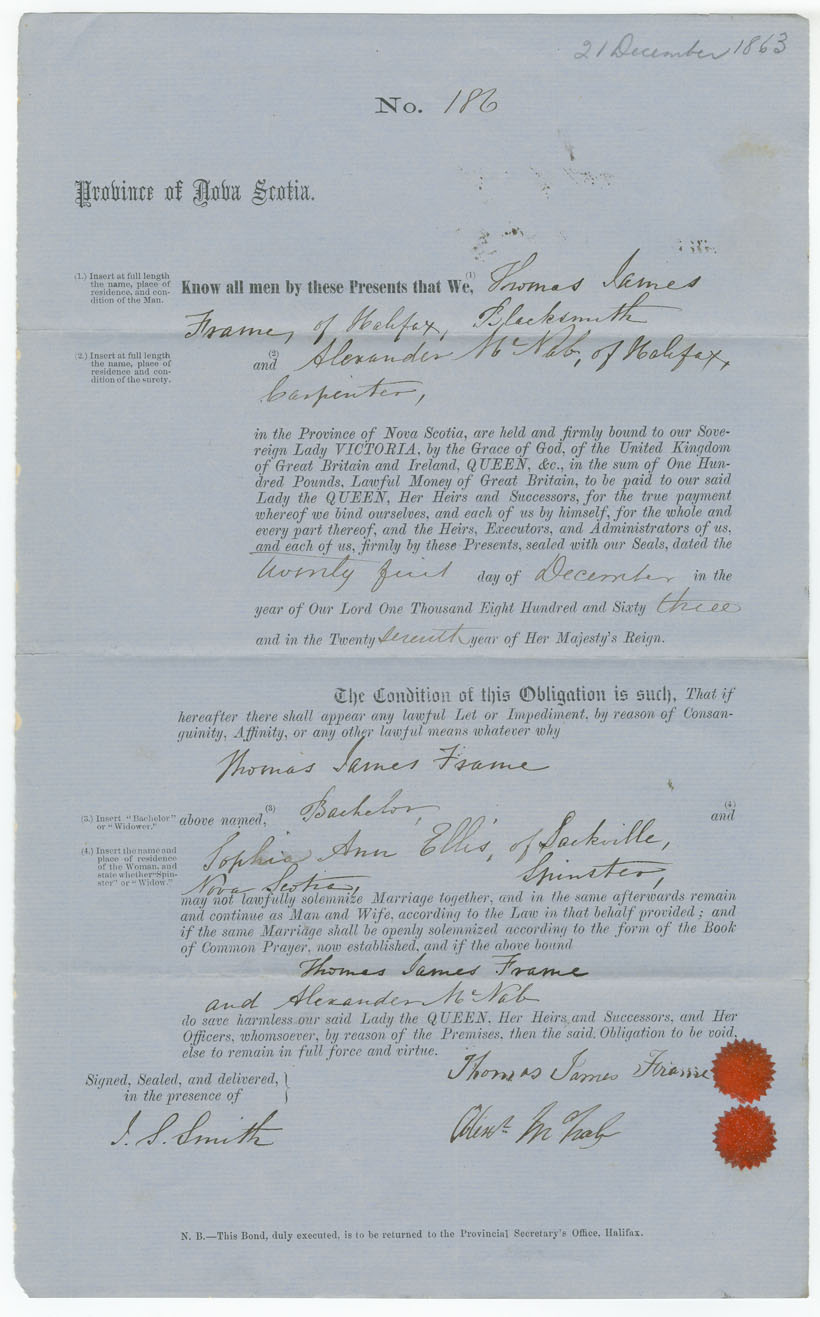 21 December 1863
No. 186
Province of Nova Scotia.
(1.) Insert at full length
the name, place of
residence, and con-
dition of the Man.
Know all men by these Presents that We, (1) Thomas James
Frame, of Halifax, Blacksmith
(2.) Insert at full length
the name, place of
residence and con-
dition of the surety.
and (2) Alexander McNab, of Halifax,
Carpenter,
in the Province of Nova Scotia, are held and firmly bound to our Sove-
reign Lady VICTORIA, by the Grace of God, of the United Kingdom
of Great Britain and Ireland, QUEEN, &c., in the sum of One Hun-
dred Pounds, Lawful Money of Great Britain, to be paid to our said
Lady the QUEEN, Her Heirs and Successors, for the true payment
whereof we bind ourselves, and each of us by himself, for the whole and
every part thereof, and the Heirs, Executors, and Administrators of us,
and each of us, firmly by these Presents, sealed with our Seals, dated the
twenty first day of December in the
year of Our Lord One Thousand Eight Hundred and Sixty three
and in the Twenty seventh year of Her Majesty's Reign.
The Condition of this Obligation is such, That if
hereafter there shall appear any lawful Let or Impediment, by reason of Consan-
guinity, Affinity, or any other lawful means whatever why
Thomas James Frame
(3.) Insert "Bachelor"
or "Widower."
above named, (3) Bachelor, and (4)
(4.) Insert the name and
place of residence
of the Woman, and
state whether "Spin-
ster" or "Widow."
Sophia Ann Ellis, of Sackville,
Nova Scotia, Spinster,
may not lawfully solemnize Marriage together, and in the same afterwards remain
and continue as Man and Wife, according to the Law in that behalf provided; and
if the same Marriage shall be openly solemnized according to the form of the Book
of Common Prayer, now established, and if the above bound
Thomas James Frame
and Alexander McNab
do save harmless our said Lady the QUEEN, Her Heirs and Successors, and Her
Officers, whomsoever, by reason of the Premises, then the said Obligation to be void,
else to remain in full force and virtue.
Signed, Sealed, and delivered,
in the presence of
Thomas James Frame
J. S. Smith
Alexr McNab
N. B.—This Bond, duly executed, is to be returned to the Provincial Secretary's Office, Halifax.